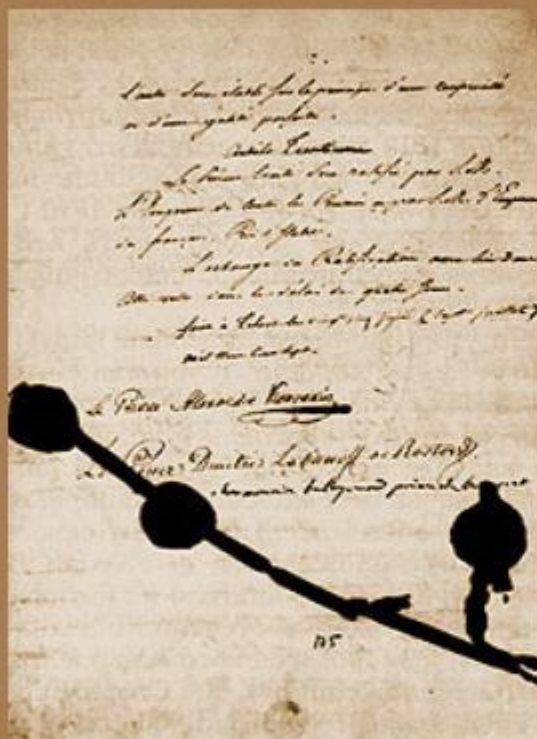 traité sera établi sur le principe d'une réciprocité
et d'une égalité parfaite.
Article
Le présent traité sera ratifié par S. M.
L'Empereur de toutes les Russies et par S. M. l'Empereur
des français, Roi d'Italie.
L'échange des Ratifications aura lieu dans
cette ville dans le délai de quatre jours.
fait à Tilsit le vingt cinq juin (sept juillet)
mil huit cent sept.
Le Prince Alexandre Kourakin
Le Prince Dimitry Labanoff de Rostoff.
maurice talleyrand prince de benevent